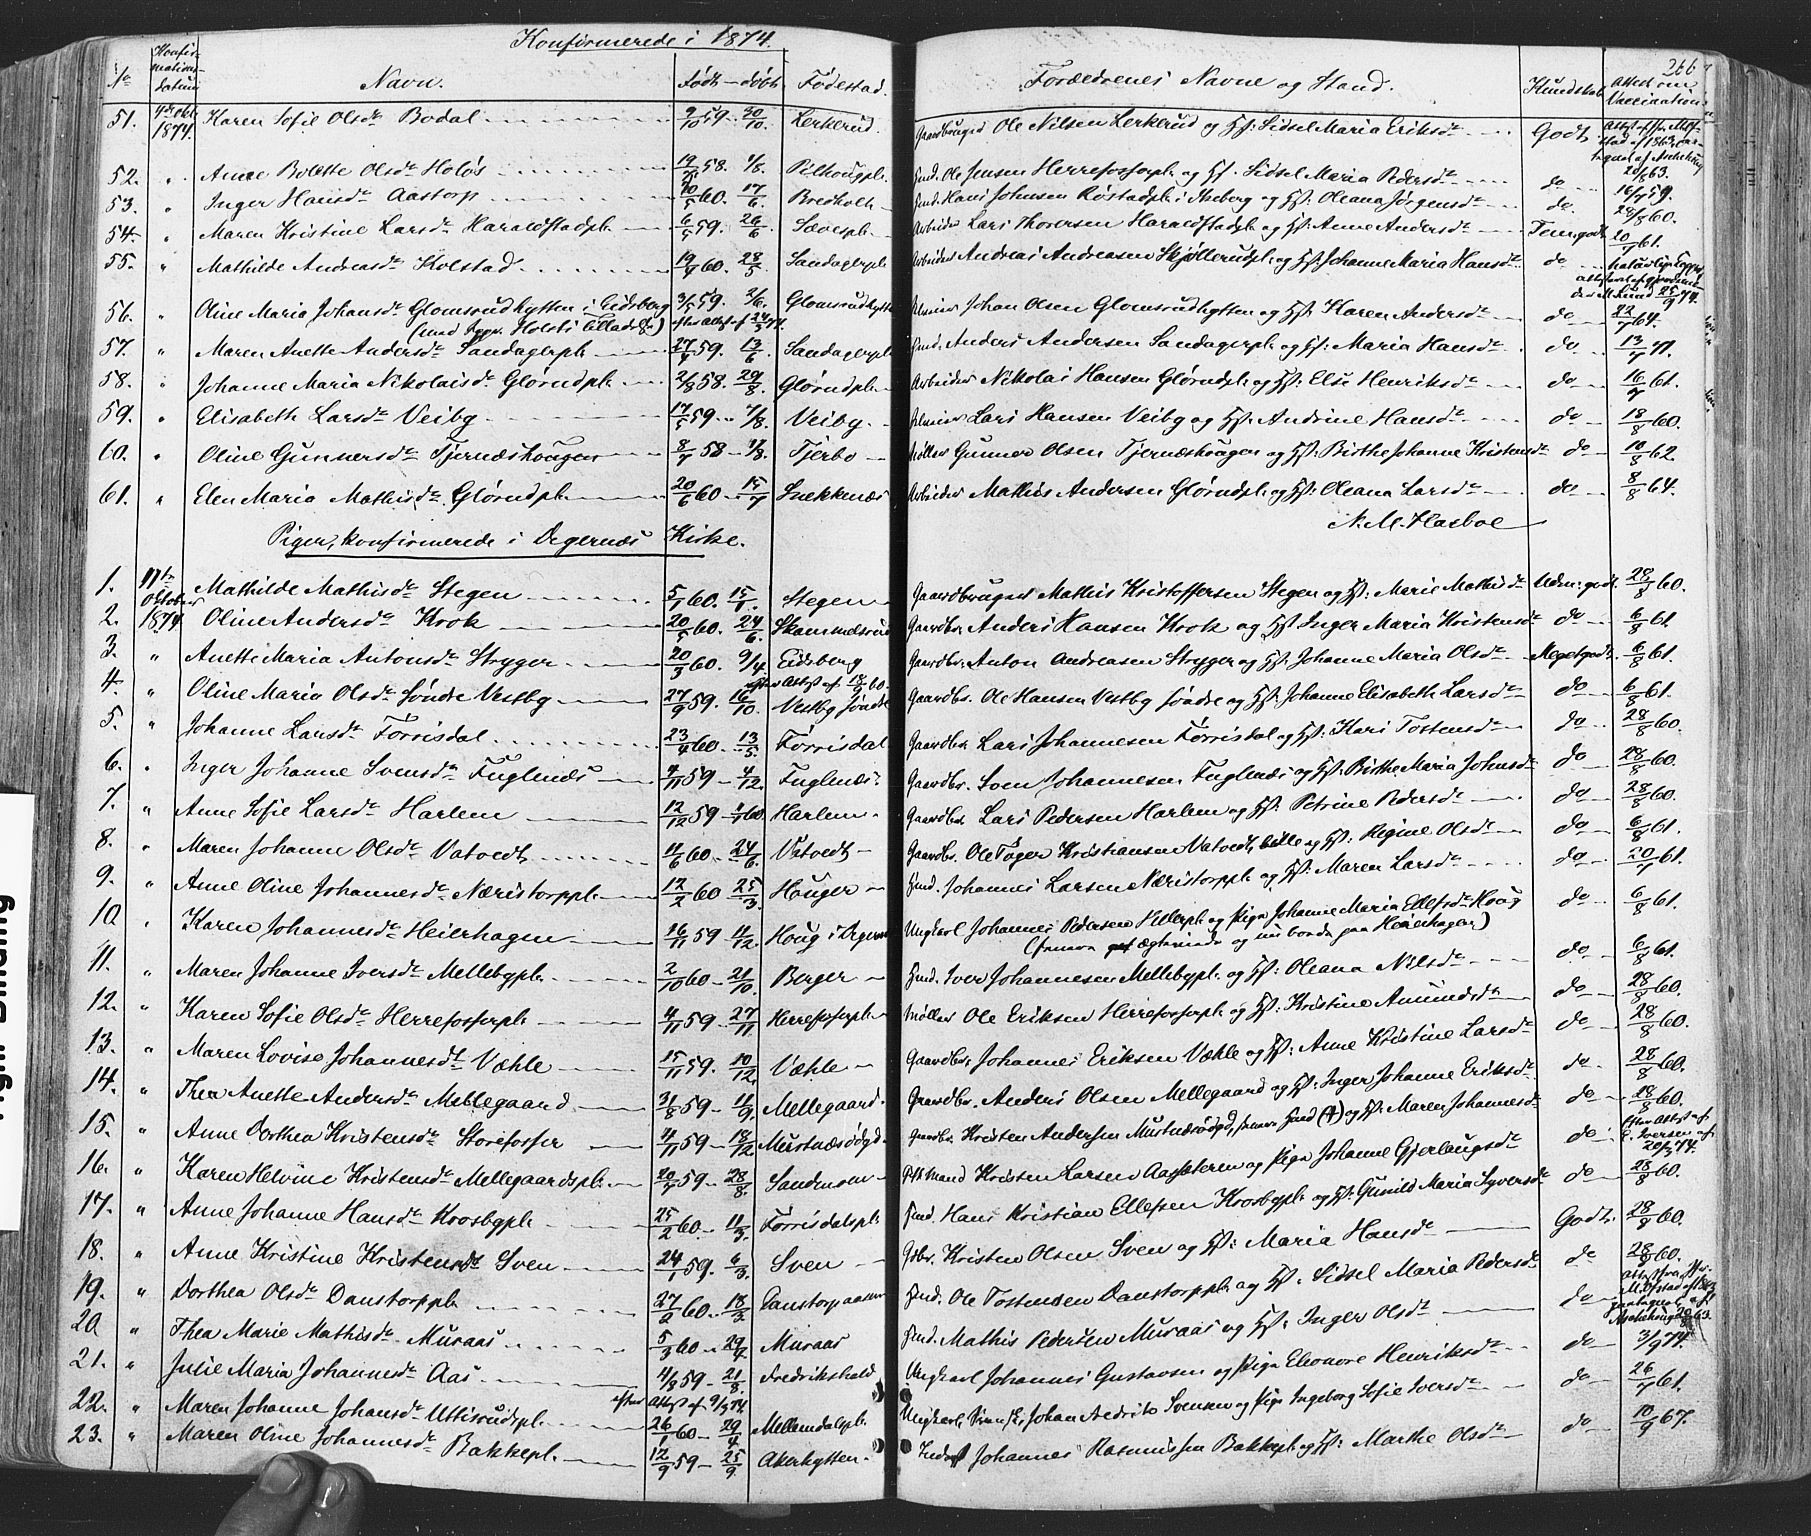 Konfirmerede i 1874.
266
No Konfirmations Datum Navn. Født – døbt Fødestad. Forældrenes Navne og Stand. Kundskab Attest om Vaccination
51. 4de Okt. 1874. Karen Sofie Olsdr Bodal 9/10 59 30/10. Lerkerud. Gaardbruger Ole Nilsen Lerkerud og Hst: Sidsel Maria Eriksdr Godt
20/5 63.
52. " Anne Bolette Olsdr Holøs 58. 1/8. Pilhougpl. Hmd. Ole Jensen Herrefosserpl. og Hst. Sidsel Maria Pedersdr do 16/7 59.
53. " Inger Hansdr Aastorp 60. 17/6. Bredholt Hmd. Hans Johnsen Røstadpl. i Askeberg og Hst: Oleana Jørgensdr do. 28/8 60.
54. " Maren Kristine Larsdr Haraldstadpl. 6/5 59. 26/6. Sævespl. Arbeider Lars Thoresen Haraldstadpl. og Hst: Anne Andersdr Temg. godt 20/7 61.
55. " Mathilde Andreasdr Kolstad 60. 28/5. Sandagerpl. Arbeider Andreas Andreasen Skjøllerudpl. og Hst: Johanne Maria Hansdr do
25/9 74.
56. " Oline Maria Johansdr Glomsrudhytten i Eidsberg 3/5 59. 2/6. Glomsrudhytte Johan Olsen Glomsrudhytten og Hst: Karen Andersdr do 22/7 64.
(med Holsts Tilladelse) efter Attest af 24/3 74.
57. " Maren Anette Andersdr Sandagerpl. 59. 13/6. Sandagerpl. Hmd. Anders Andersen Sandagerpl. og Hst: Maria Hansdr do 13/7 71.
58. " Johanne Maria Nikolaisdr Glørudpl. 2/8 58. 29/8. Glørudpl. Arbeider Nikolai Hansen Glørudpl. og Hst: Else Henriksdr do 16/7 61.
59. " Elisabeth Larsdr Veibg 17/5 59. 7/8. Veibg. Lars Hansen Veibg og Hst: Andrine Hansdr do 18/8 60.
60. " Oline Gunnersdr Tjernæshougen 8/7 58 – 1/8. Tjerbo Møller Gunner Olsen Tjernæshougen og Hst: Birthe Johanne Kristensdr do 10/8 62.
61. " Elen Maria Mathisdr Glørudpl. 20/6 60 – 15/7 Snekkenæs Arbeider Mathis Andersen Glørudpl. og Hst: Oleana Larsdr do 8/8 64.
N. M. Hasboe
Piger, konfirmerede i Degernæs Kirke.
1. 11te Oktober 1874 Mathilde Mathisdr Stegen 5/1 60. 15/1. Stegen Gaardbruger Mathis Kristoffersen Stegen og Hst: Marie Mathisdr Udm: godt. 28/8 60.
2. Oline Andersdr Krok 20/5 60. 24/6. Skammelsrud Gaardbr. Anders Hansen Krok og Hst: Inger Maria Kristensdr do 6/8 61.
3. " Anette Maria Antonsdr Stryger 20/3 60. 9/4. Eidsberg Gaardbr. Anton Andreasen Stryger og Hst. Johanne Maria Olsdr Meget godt. 6/8 61.
efter Attest af 18/9 60.
4. " Oline Maria Olsdr Søndre Vestby 27/9 59. 16/10. Vestby søndre Gaardbr. Ole Hansen Vestby søndre og Hst: Johanne Elisabeth Larsdr do 6/8 61.
5. " Johanne Larsdr Førrisdal 23/4 60. 13/5. Førrisdal Gaardbr. Lars Johannesen Førrisdal og Hst: Kari Tostensdr do 28/8 60.
6. " Inger Johanne Svensdr Fuglenæs 4/11 59 – 4/12. Fuglenæs. Gaardbr. Sven Johannesen Fuglenæs og Hst: Birthe Maria Johnsdr do 28/8 60.
7. " Anne Sofie Larsdr Harlem 12/12 59 1/1 60. Harlem. Gaardbr. Lars Pedersen Harlem og Hst: Petrine Pedersdr do 28/8 60.
8. " Maren Johanne Olsdr Vatvedt 11/6 60. 24/6. Vatvedt Gaardbr. Ole Tøger Kristiansen Vatvedt, lille og Hst: Regine Olsdr do 6/8 61.
9. " Anne Oline Johannesdr Næristorppl. 12/2 60 25/3. Houger Hmd. Johannes Larsen Næristorppl. og Hst: Maren Larsdr do 20/7 61.
10 " Karen Johannesdr Heierhagen 16/11 59 11/12. Houg i Degernæs Ungkarl Johannes Pedersen og Pige Johanne Maria Ellefsdr Houg do 6/8 61.
(senere ægteviede og nu boende paa Heierhagen)
11. " Maren Johanne Iversdr Mellebypl. 2/10 60 – 21/10. Berger Hmd. Iver Johannesen Mellebypl. og Hst: Oleana Nilsdr do 6/8 61.
12. " Karen Sofie Olsdr Herrefosserpl. 4/11 59 – 27/11 Herrefosserpl. Møller Ole Eriksen Herrefosserpl. og Hst: Kristine Amundsdr do 28/8 60.
13. " Maren Lovise Johannesdr Væhle 15/11 59. 10/12. Væhle Gaardbr. Johannes Eriksen Væhle og Hst: Anne Kristine Larsdr do 28/8 60.
14. " Thea Anette Andersdr Mellegaard 31/8 59 – 11/9. Mellegaard. Gaardbr. Anders Olsen Mellegaard og Hst: Inger Johanne Eriksdr do 28/8 60.
15. " Anne Dorthea Kristensdr Storefosser 4/11 59 – 18/12 Gaardbr. Kristen Andersen senere Hmd (†) og Hst: Maren Johannesdr do 18/8 60.
Efter Attest af E. Iversen af 20/5 74.
16. " Karen Helvine Kristensdr Mellegaardspl. 20/7 59 – 28/8. Sandmoen Kristen Larsen og Pige Johanne Gjerlaugsdr do 28/8 60.
17. " Anne Johanne Hansdr Krosbypl. 25/2 60 – 11/3. Førrisdalspl. Hmd. Hans Kristian Ellefsen Krosbypl. og Hst: Gunild Maria Syversdr do 28/8 60.
18. " Anne Kristine Kristensdr Sven 24/1 59. 6/3. Sven Gdbr. Kristen Olsen Sven og Hst: Maria Hansdr Godt. 28/8 60.
19. " Dorthea Olsdr Danstorppl. 27/2 60 – 18/3. Hmd. Ole Tostensen Danstorppl. og Hst. Sidsel Maria Pedersdr do
20 " Thea Marie Mathisdr Muraas 5/3 60 – 29/4. Muraas Hmd. Mathis Pedersen Muraas og Hst: Inger Olsdr do 3/9 74.
21. " Julie Maria Johannesdr Aas 4/8 59 – 21/8. Fredrikshald Ungkarl Johannes Gustavsen og Pige Eleonore Henriksdr do 26/7 61.
efter Attest af 9/3 74.
22. " Maren Johanne Johansdr Uttisrudspl. 26/1 60 – 29/4 Mellemdalspl. Ungkarl, Svensk, Johan Fredrik Svensen og Pige Ingeborg Sofie Iversdr do 10/9 67.
23. " Maren Oline Johannesdr Bakkepl. 12/9 59 – 25/9. Akerhytten. Inderst Johannes Rasmussen Bakkepl. og Hst: Marthe Olsdr do